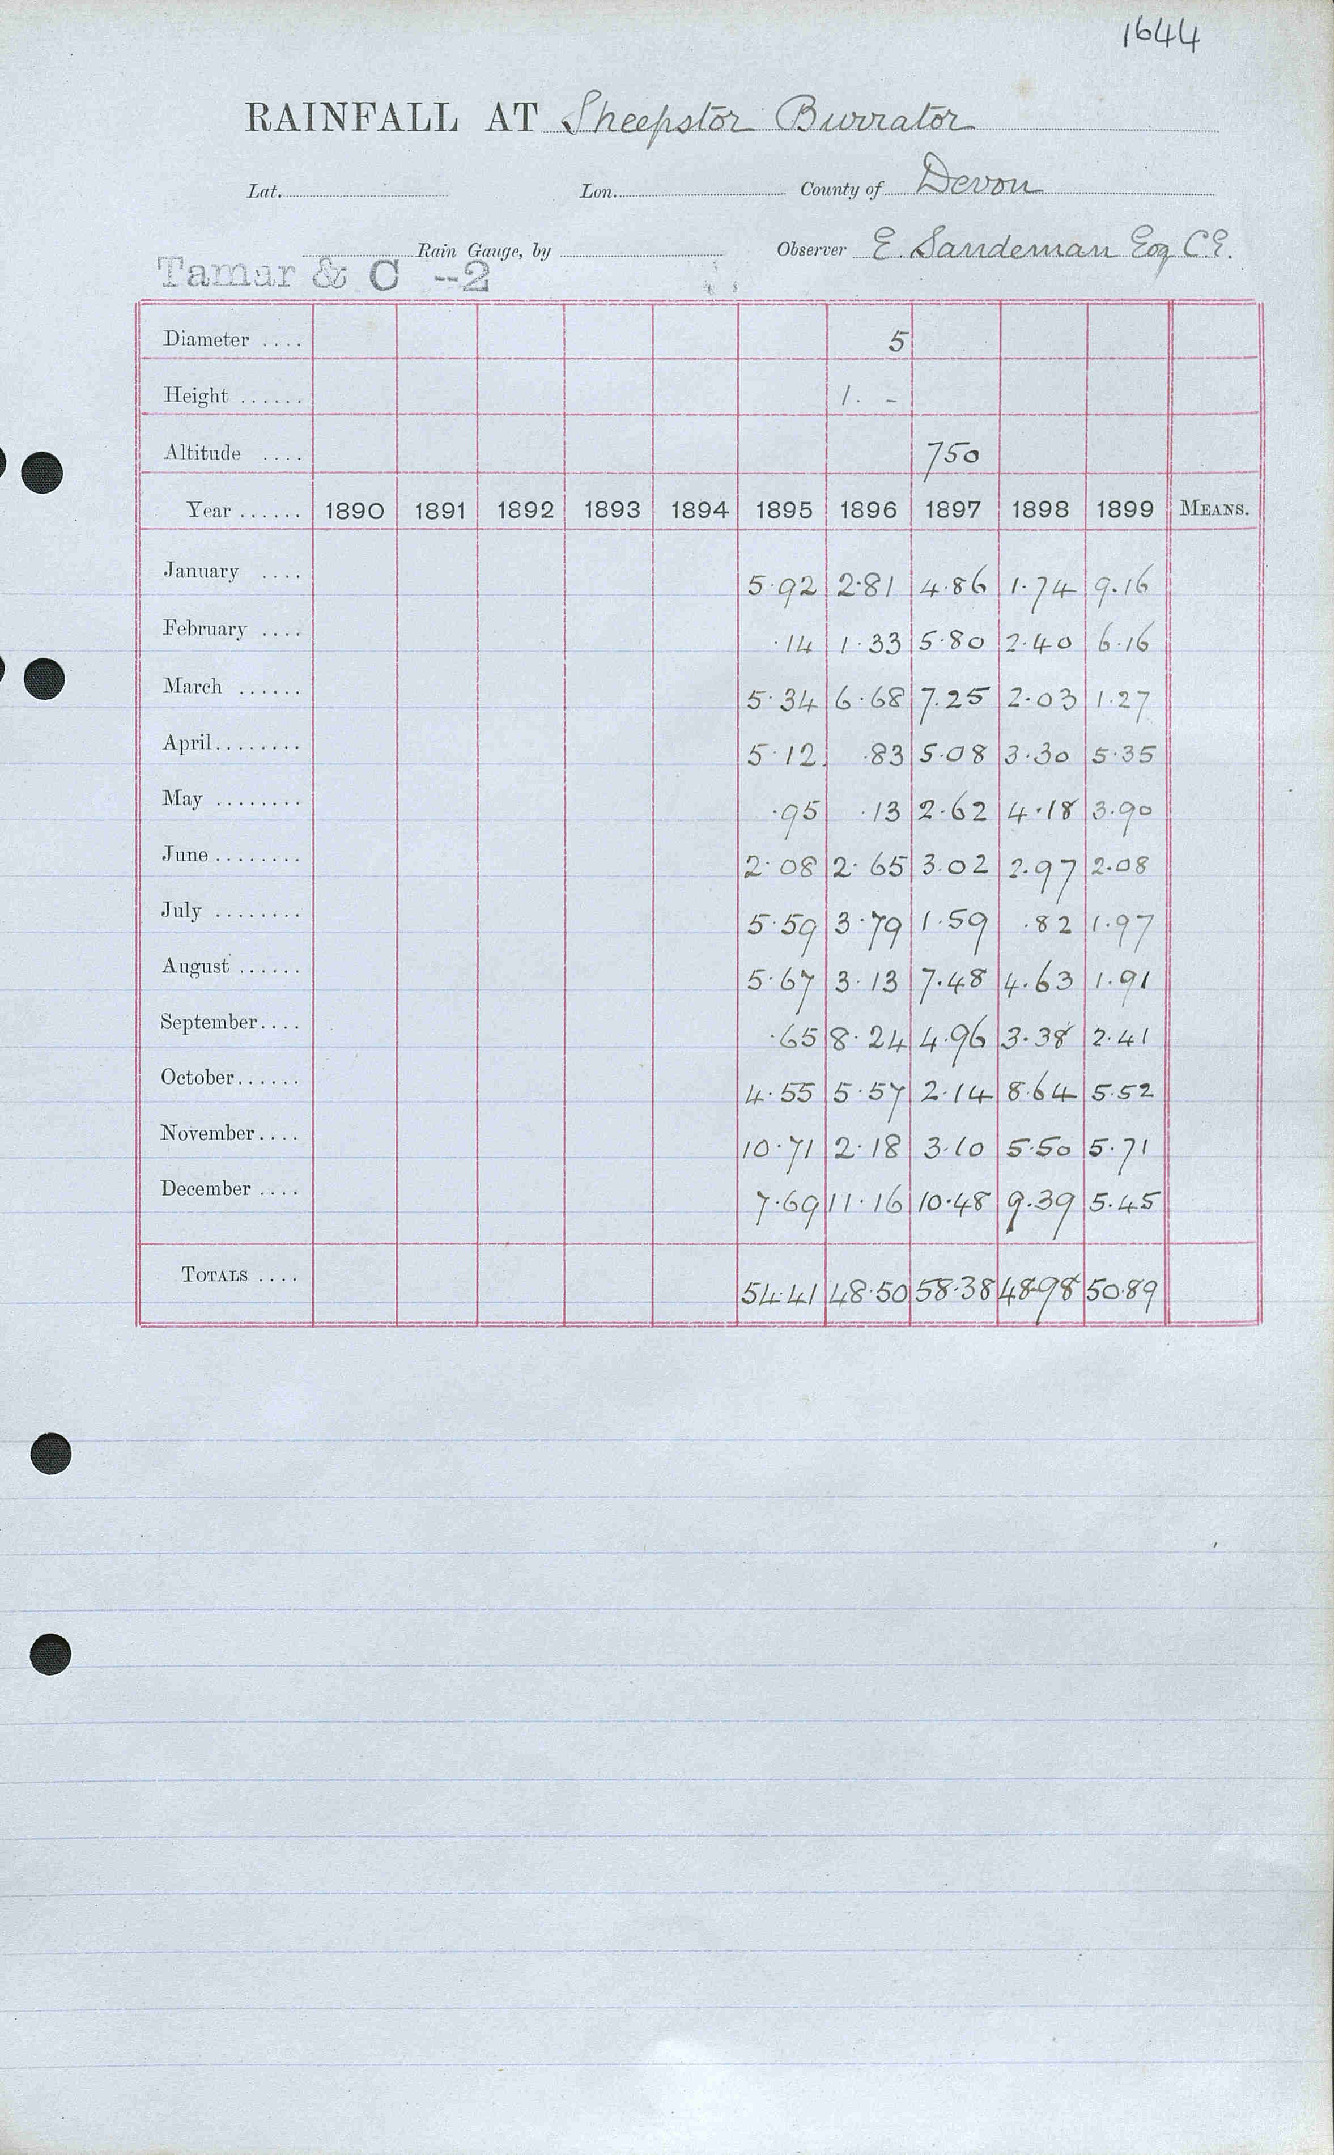 1644
RAINFALL AT Sheepstor Burrator
Lat. Lon. County of Devon
Rain Gauge, by Observer E. Sandeman Esq C.E.
Tamar & C --2
Diameter .... 5
Height ...... 1. -
Altitude .... 750
Year ...... 1890 1891 1892 1893 1894 1895 1896 1897 1898 1899 MEANS.
January .... 5.92 2.81 4.86 1.74 9.16
February .... .14 1.33 5.80 2.40 6.16
March ...... 5.34 6.68 7.25 2.03 1.27
April........ 5.12 .83 5.08 3.30 5.35
May ........ .95 .13 2.62 4.18 3.90
June ........ 2.08 2.65 3.02 2.97 2.08
July ........ 5.59 3.79 1.59 .82 1.97
August ...... 5.67 3.13 7.48 4.63 1.91
September.... .65 8.24 4.96 3.38 2.41
October...... 4.55 5.57 2.14 8.64 5.52
November.... 10.71 2.18 3.10 5.50 5.71
December .... 7.69 11.16 10.48 9.39 5.45
TOTALS .... 54.41 48.50 58.38 48.98 50.89